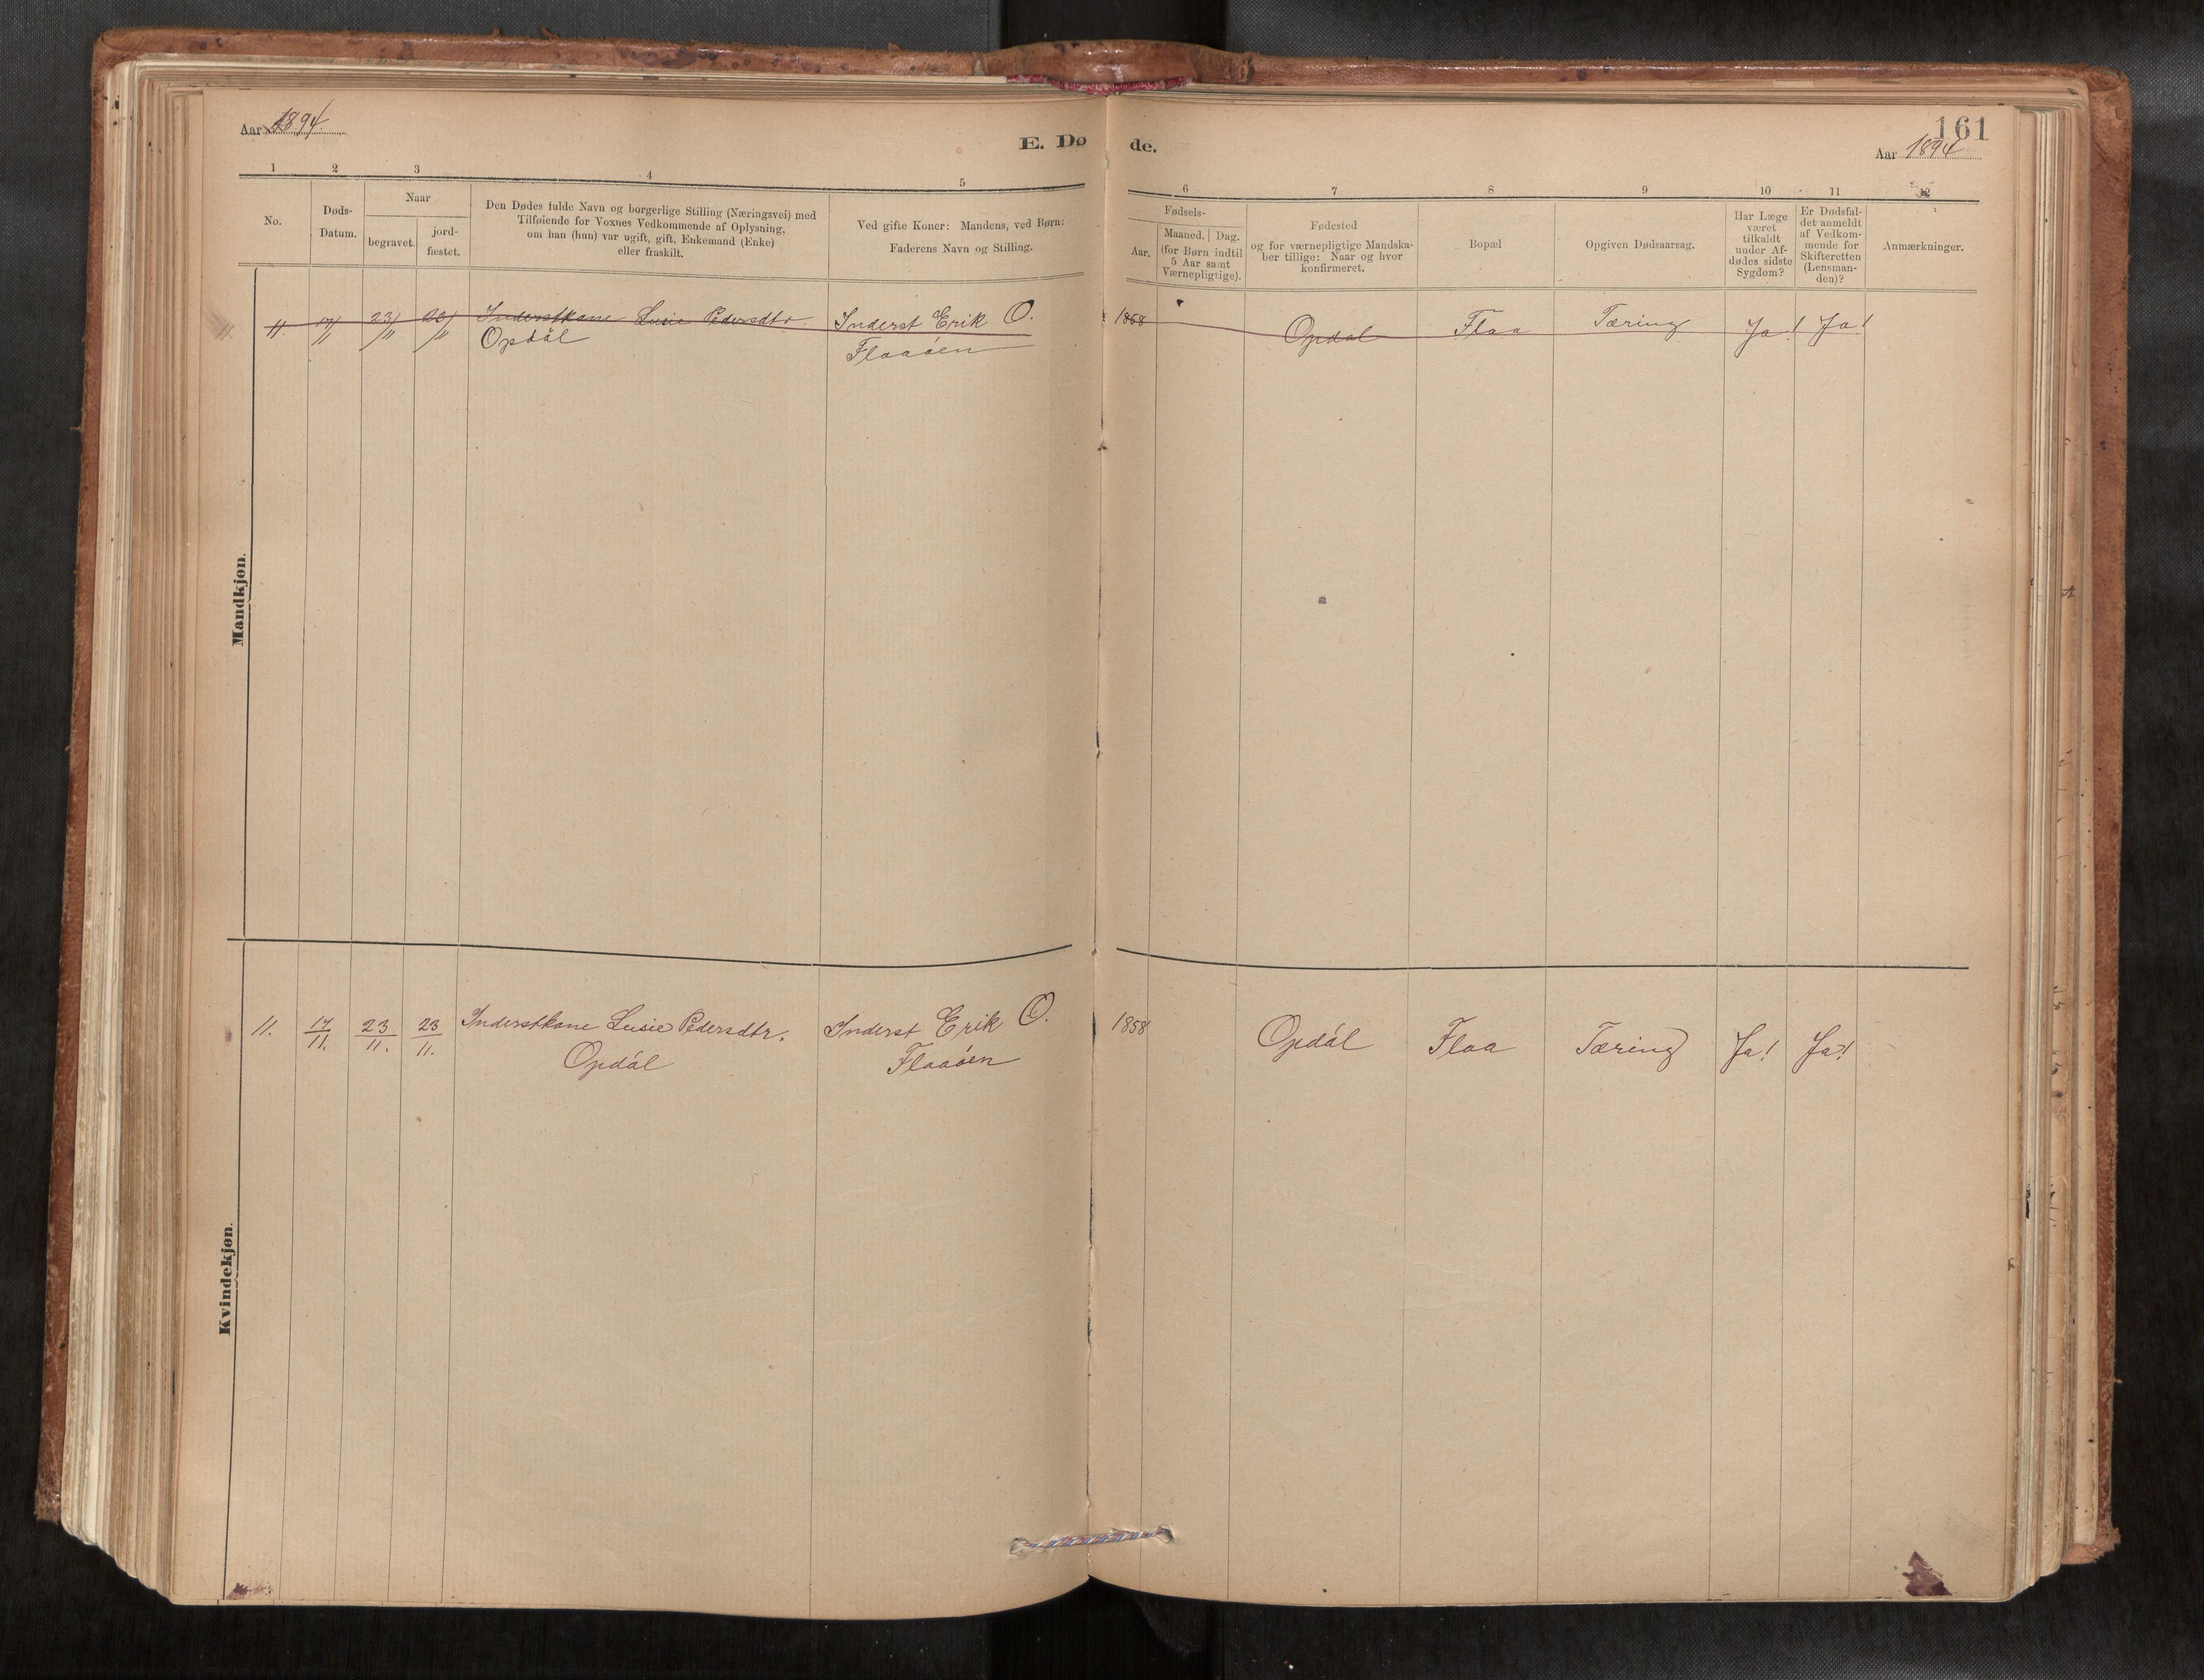 Aar 1894.
E. Døde.
161
Aar 1894
1 2 3 4 5 6 7 8 9 10 11 12
No.
Døds-
Datum.
Naar
begravet.
jord-
fæstet.
Den Dødes fulde Navn og borgerlige Stilling (Næringsvei) med
Tilføiende for Voxnes Vedkommende af Oplysning,
om han (hun) var ugift, gift, Enkemand (Enke)
eller fraskilt.
Ved gifte Koner: Mandens, ved Børn:
Faderens Navn og Stilling.
Fødsels-
Aar.
Maaned. Dag.
(for Børn indtil
5 Aar samt
Værnepligtige).
Fødested
og for værnepligtige Mandska-
ber tillige: Naar og hvor
konfirmeret.
Bopæl
Opgiven Dødsaarsag.
Har Læge
været
tilkaldt
under Af-
dødes sidste
Sygdom?
Er Dødsfal-
det anmeldt
af Vedkom-
mende for
Skifteretten
(Lensman-
den)?
Anmærkninger.
Mandkjøn.
11. 17/11 23/11 23/11 Inderstkone Lusie Pedersdtr. Inderst Erik O. 1858 Opdal Flaa Tæring Ja! Ja!
Opdöl Flaaöen
Kvindekjøn.
11. 17/11. 23/11. 23/11. Inderstkone Lusie Pedersdtr. Inderst Erik O. 1858 Opdöl Flaa Tæring Ja! Ja!
Opdöl Flaaöen